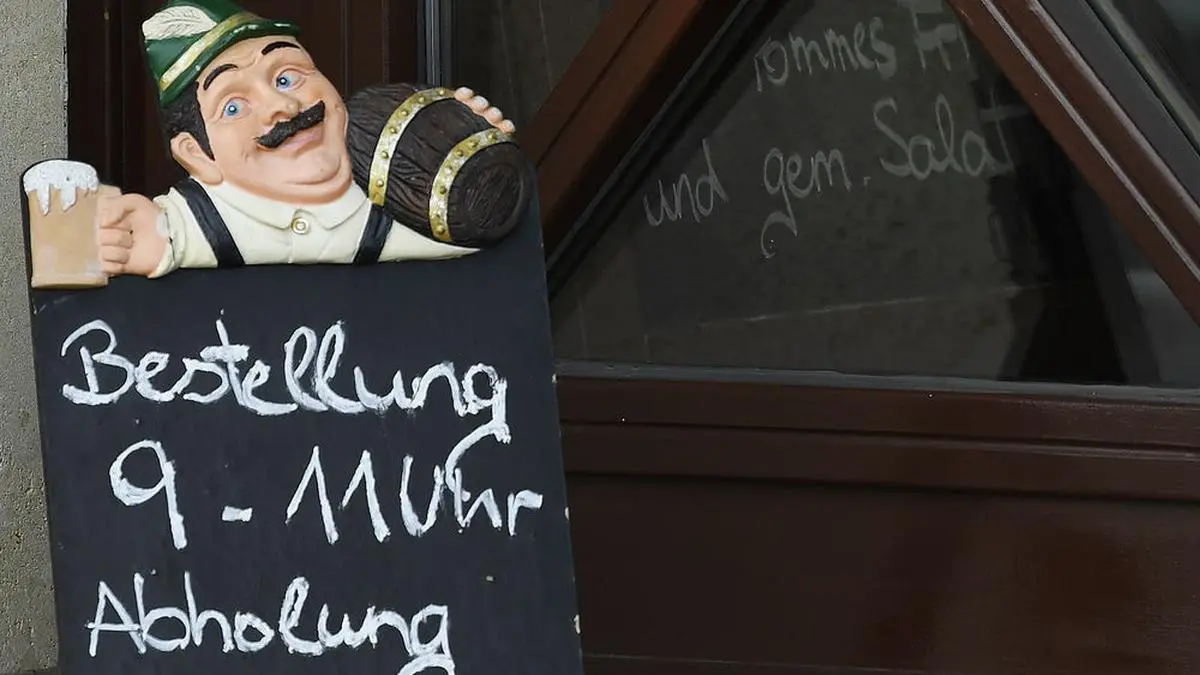 Bestellung
9 - 11 Uhr
Abholung
und gem. Salat